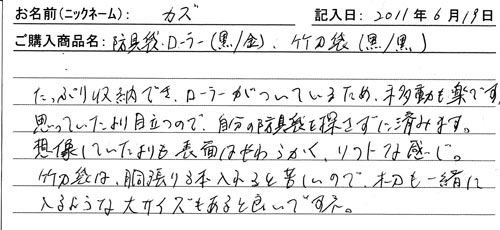 お名前(ニックネーム): カズ 記入日: 2011年6月19日
ご購入商品名: 防具袋・ローラー(黒/金)、竹刀袋(黒/黒)
たっぷり収納でき、ローラーがついているため、移動も楽です。
思っていたより目立つので、自分の防具袋を探さずに済みます。
想像していたよりも表面はやわらかく、ソフトな感じ。
竹刀袋は、胴張り3本入れると苦しいので、木刀も一緒に
入るような大サイズもあると良いですネ。